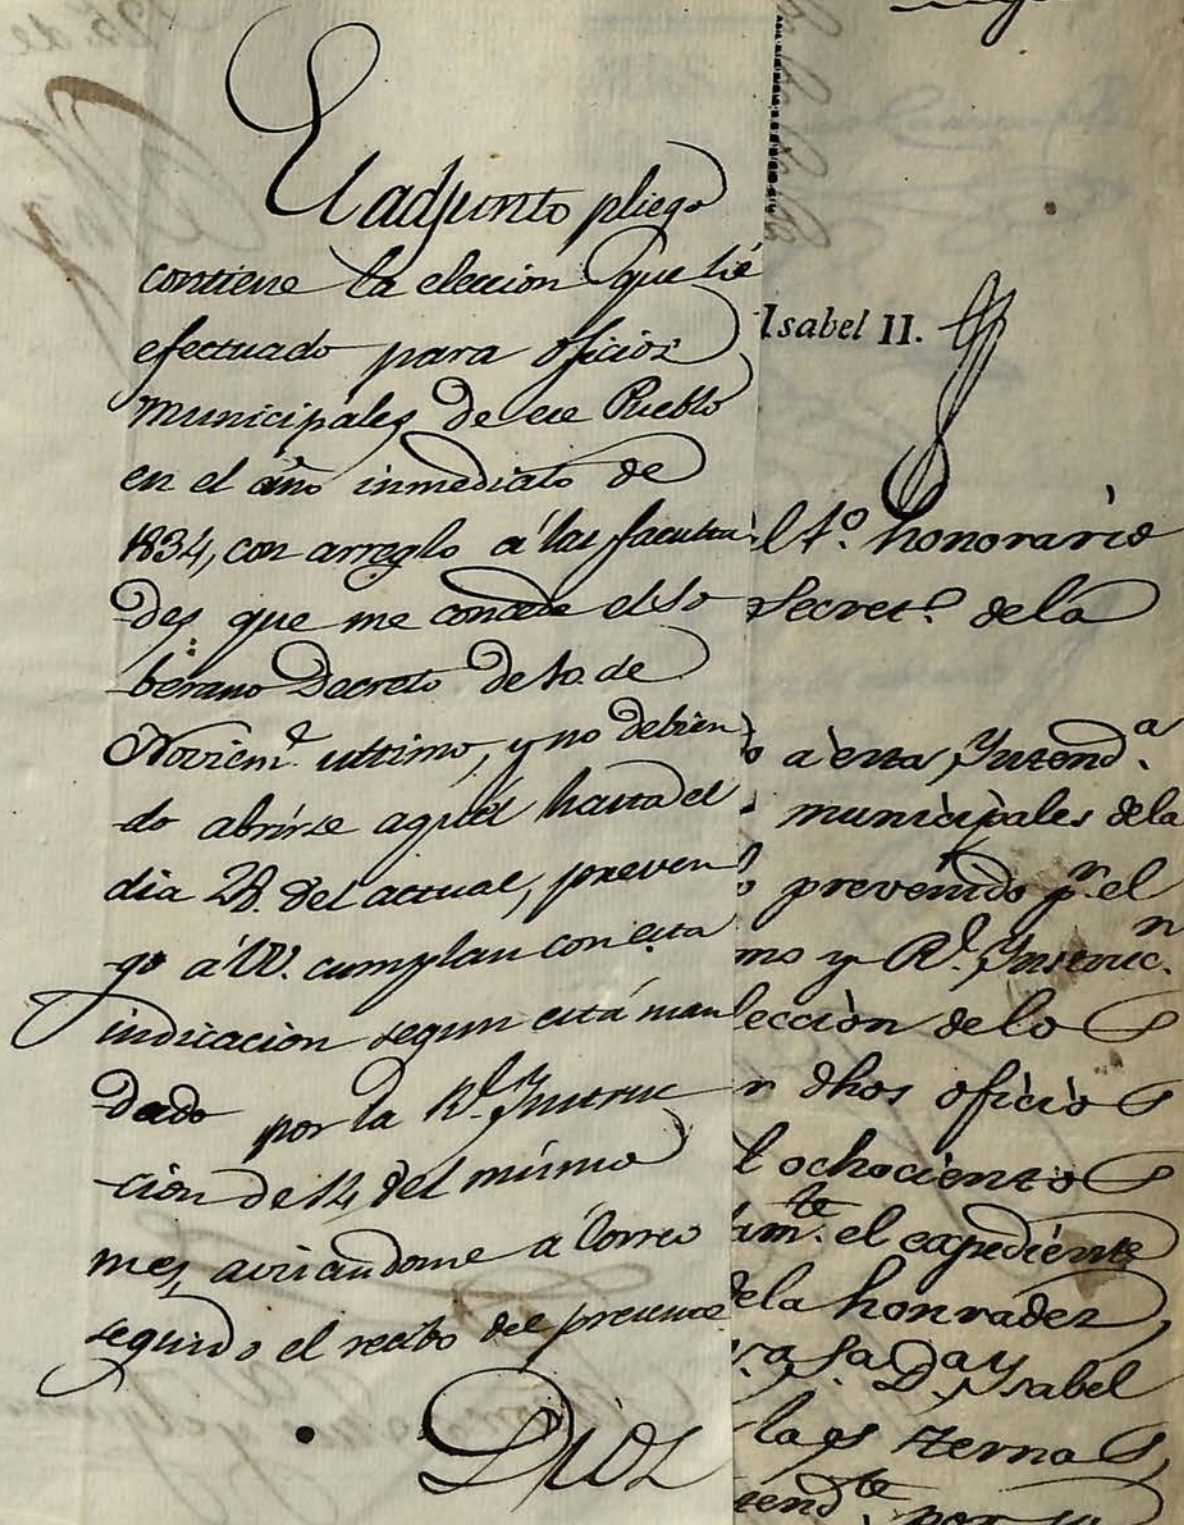 El adjunto pliego
contiene la eleccion que hé
efectuado para oficios
municipales de ese Pueblo
en el año inmediato de
1834, con arreglo á las faculta
des que me concede el So
berano Decreto de 10. de
Noviem.e ultimo, y no debien
do abrirse aquél hasta el
dia 28. del actual, preven
go á VV. cumplan con esta
indicacion segun está man
dado por la Rl. Instruc
ción de 14 del mismo
mes, avisandome a Correo
seguido el recibo del presente
Dios
Isabel II.
l 1.º honorario
Secret.º de la
a esta Yntend.a
municipales de la
prevenido p.r el
mo y Rl. Ynstruc.n
leccion de los
n dhos oficios
l ochocientos
am.te el expediente
de la honradez,
D.a Ysabel
las ternas,
tend.te por su